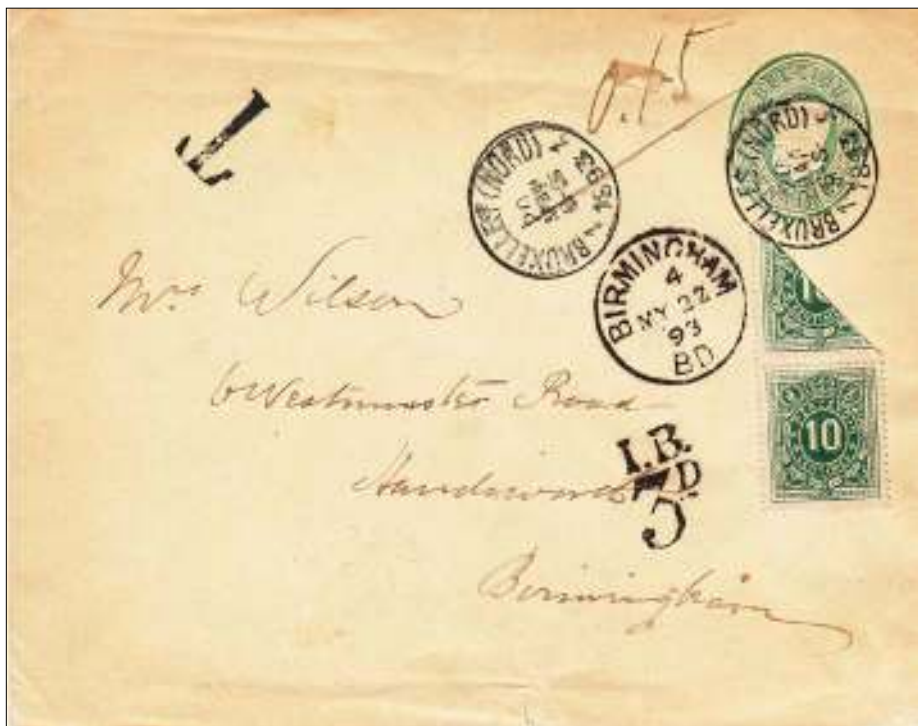 T
0.15
BRUXELLES (NORD)
1893
BRUXELLES (NORD)
1893
BIRMINGHAM
4
MY 22
93
BD
Mrs Wilson
1
6 Westminster Road
10
Handsworth
I.B.
3D
Birmingham